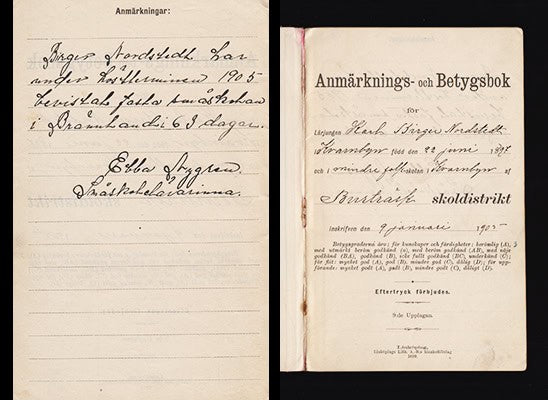 Anmärkningar:
Birger Nordstedt har
under höstterminen 1905
bevistat fasta småskolan
i Brännland i 63 dagar.
Ebba Nygren.
Småskolelärarinna.
Anmärknings- och Betygsbok
för
Lärjungen Karl Birger Nordstedt
Kvarnbyn född den 22 juni 1897
och i mindre folkskolan i Kvarnbyn af
Burträsk skoldistrikt
inskrifven den 9 januari 1905
Betygsgraderna äro: för kunskaper och färdigheter: berömlig (A),
med utmärkt beröm godkänd (a), med beröm godkänd (AB), med nöje
godkänd (BA), godkänd (B), icke fullt godkänd (BC), underkänd (C);
för flit: mycket god (A), god (B), mindre god (C), dålig (D); för upp-
förande: mycket godt (A), godt (B), mindre godt (C), dåligt (D).
Eftertryck förbjudes.
9:de Upplagan.
Linköping.